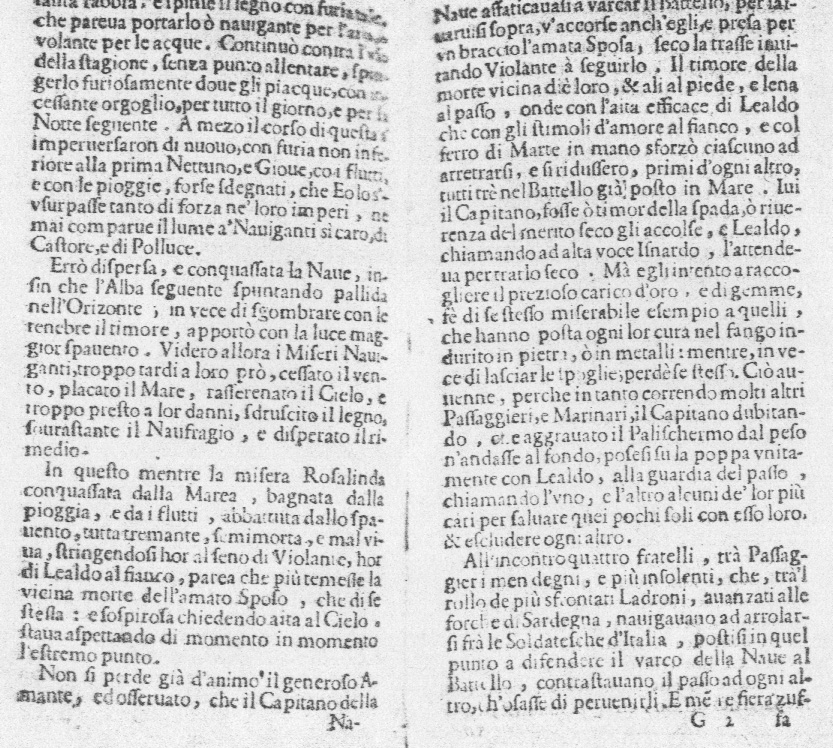 tanta rabbia. e spinse il legno con furia tale,
che pareua portarlo ò nauigante per l'aria, ò
volante per le acque. Continuò contra l'vso
della stagione, senza punto allentare, spin-
gerlo furiosamente doue gli piacque, con in-
cessante orgoglio, per tutto il giorno, e per la
Notte seguente. A mezo il corso di questa s'
imperuersaron di nuouo, con furia non infe-
riore alla prima Nettuno, e Gioue, co i flutti,
e con le pioggie, forse sdegnati, che Eolo s'-
vsurpasse tanto di forza ne' loro imperi, ne
mai comparue il lume a' Nauiganti sì caro, di
Castore, e di Polluce.
Errò dispersa, e conquassata la Naue, in-
sin che l'Alba seguente spuntando pallida
nell'Orizonte, in vece di sgombrare con le
tenebre il timore, apportò con la luce mag-
gior spauento. Videro allora i Miseri Naui-
ganti, troppo tardi a loro prò, cessato il ven-
to, placato il Mare, rasserenato il Cielo, e
troppo presto a lor danni, sdruscito il legno,
sourastante il Naufragio, e disperato il ri-
medio.
In questo mentre la misera Rosalinda
conquassata dalla Marea, bagnata dalla
pioggia, e da i flutti, abbattuta dallo spa-
uento, tutta tremante, semimorta, e mal vi-
ua, stringendosi hor al seno di Violante, hor
di Lealdo al fianco, parea che più temesse la
vicina morte dell'amato Sposo, che di se
stessa: e sospirosa chiedendo aita al Cielo.
staua aspettando di momento in momento
l'estremo punto.
Non si perde già d'animo il generoso A-
mante, ed osseruato, che il Capitano della
Na-
Naue affaticauasi a varcar il Battello, per sal-
uaruisi sopra, v'accorse anch'egli, e presa per
vn braccio l'amata Sposa, seco la trasse inui-
tando Violante à seguirlo. Il timore della
morte vicina diè loro, & ali al piede, e lena
al passo, onde con l'aita efficace di Lealdo
che con gli stimoli d'amore al fianco, e col
ferro di Marte in mano sforzò ciascuno ad
arretrarsi, e si ridussero, primi d'ogni altro,
tutti trè nel Battello già posto in Mare. Iui
il Capitano, fosse ò timor della spada, ò riue-
renza del merito seco gli accolse, e Lealdo,
chiamando ad alta voce Isnardo, l'attende-
ua per trarlo seco. Mà egli intento a racco-
gliere il prezioso carico d'oro, e di gemme,
fè di se stesso miserabile esempio a quelli,
che hanno posta ogni lor cura nel fango in-
durito in pietre, ò in metalli: mentre, in ve-
ce di lasciar le spoglie, perdè se stesso. Ciò au-
uenne, perche in tanto correndo molti altri
Passaggieri, e Marinari, il Capitano dubitan-
do, che aggrauato il Palischermo dal peso
n'andasse al fondo, posesi su la poppa vnita-
mente con Lealdo, alla guardia del passo,
chiamando l'vno, e l'altro alcuni de' lor più
cari per saluare quei pochi soli con esso loro.
& escludere ogni altro.
All'incontro quattro fratelli, trà Passag-
gieri men degni, e più insolenti, che, trà'l
rollo de più sfrontati Ladroni, auanzati alle
forche di Sardegna, nauigauano ad arrolar-
si frà le Soldatesche d'Italia, postisi in quel
punto a difendere il varco della Naue al
Battello, contrastauano il passo ad ogni al-
tro, ch'osasse di peruenirli. E mẽtre fiera zuf-
G 2 fa